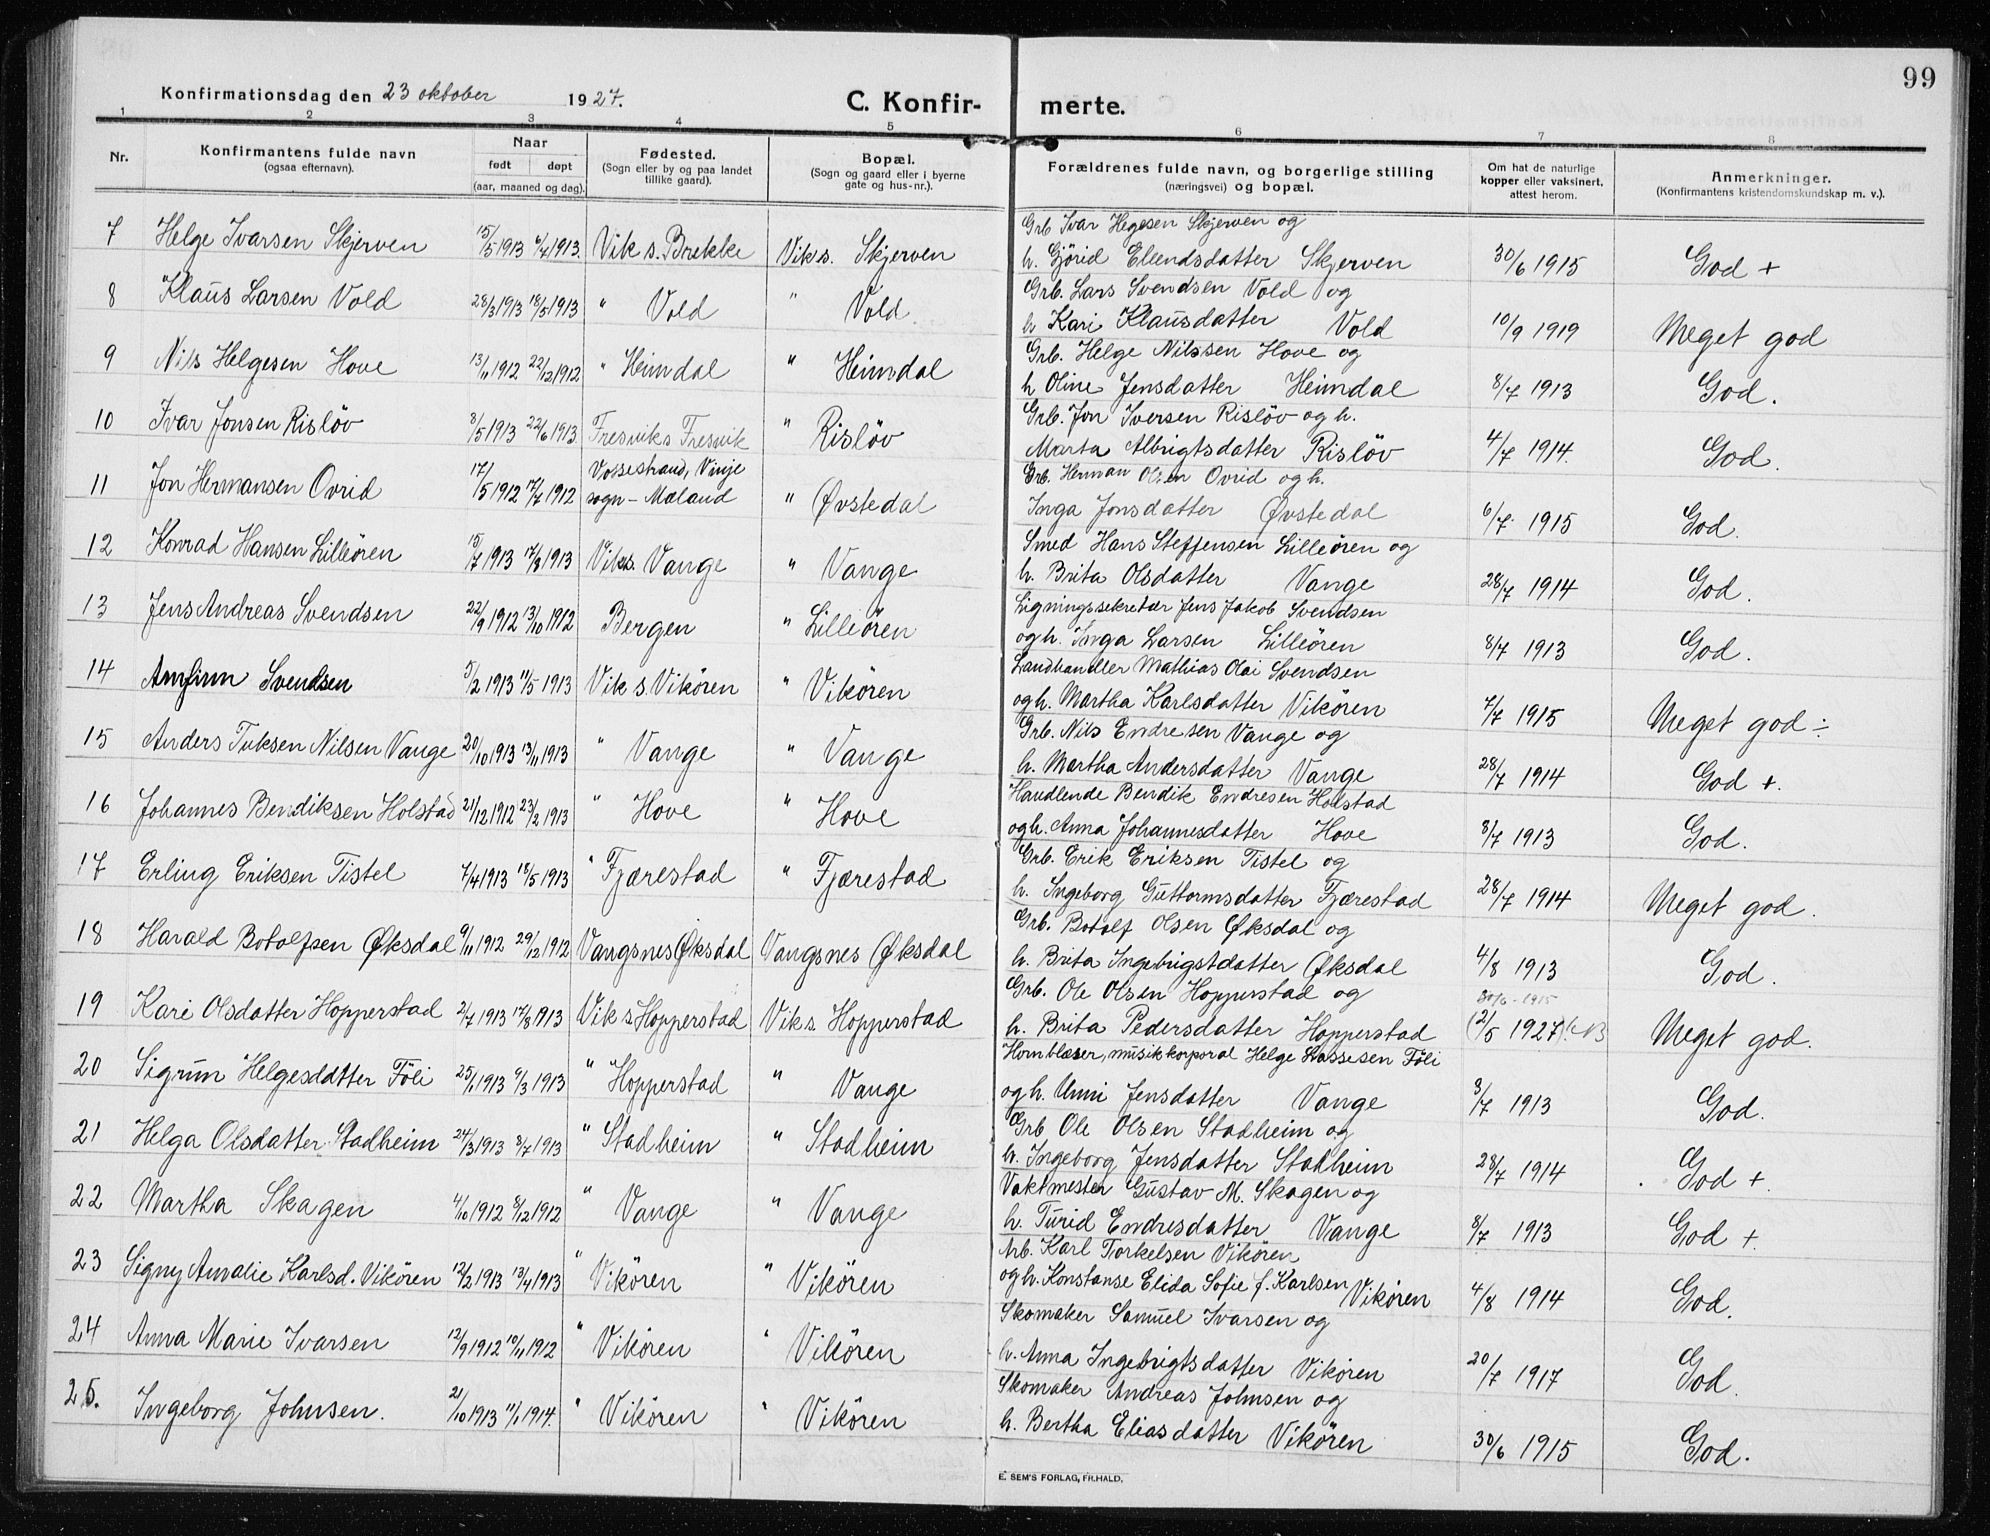 99
Konfirmationsdag den 23 oktober 1927.
C. Konfir- merte.
1 2 3 4 5 6 7 8
Nr. Konfirmantens fulde navn (ogsaa efternavn). Naar født døpt (aar, maaned og dag). Fødested. (Sogn eller by og paa landet tillike gaard). Bopæl. (Sogn og gaard eller i byerne gate og hus-nr.). Forældrenes fulde navn, og borgerlige stilling (næringsvei) og bopæl. Om hat de naturlige kopper eller vaksinert, attest herom. Anmerkninger. (Konfirmantens kristendomskundskap m. v.).
Grb Ivar Hegesen Skjerven og
7 Helge Ivarsen Skjerven 15/5 1913 6/7 1913. Vik s. Brekke Vik s. Skjerven h. Gjørid Elendsdatter Skjerven 30/6 1915 God +
Grb. Lars Svendsen Vold og
8 Klaus Larsen Vold 28/3 1913 18/5 1913 " Vold " Vold h Kari Klausdatter Vold 10/9 1919 Meget god
Grb. Helge Nilssen Hove og
9 Nils Helgesen Hove 13/11 1912 22/12 1912 " Heimdal " Heimdal h Oline Jensdatter Heimdal 8/7 1913 God.
Grb. Jon Iversen Risløv og h.
10 Ivar Jonsen Risløv 8/5 1913 22/6 1913 Fresvik s Fresvik " Risløv Marta Albrigtsdatter Risløv 4/7 1914. God.
Grb. Herman Olsen Ovrid og h.
11 Jon Hermansen Ovrid 17/5 1912 17/7 1912 Vossestrand, Vinje sogn - Mæland " Øvstedal Inga Jonsdatter Øvstedal 6/7 1915 God.
Smed Hans Steffensen Lilleören og
12 Konrad Hansen Lilleören 15/7 1913 17/8 1913 Vik s. Vange " Vange h. Brita Olsdatter Vange 28/7 1914 God.
Ligningssekretær Jens Jakob Svendsen
13 Jens Andreas Svendsen 22/9 1912 13/10 1912 Bergen " Lilleören og h. Inga Larsen Lilleören 8/7 1913 God.
Landhandler Mathias Olai Svendsen
14 Arnfinn Svendsen 5/2 1913 11/5 1913 Vik s. Vikören " Vikören og h. Martha Karlsdatter Vikören 7/7 1915 Meget god ÷
Grb. Nils Endresen Vange og
15 Anders Tuksen Nilsen Vange 20/10 1913 13/11 1913 " Vange " Vange h. Martha Andersdatter Vange 28/7 1914 God +.
Handlende Bendik Endresen Holstad
16 Johannes Bendiksen Holstad 21/12 1912 23/2 1913 " Hove " Hove og h. Anna Johannesdatter Hove 8/7 1913 God.
Grb. Erik Eriksen Tistel og
17 Erling Eriksen Tistel 7/4 1913 18/5 1913 " Fjærestad " Fjærestad h. Ingeborg Guttormsdatter Fjærestad 28/7 1914 Meget god.
Grb. Botolf Olsen Øksdal og
18 Harald Botolfsen Øksdal 9/11 1912 29/12 1912 Vangsnes Øksdal Vangsnes Øksdal h. Brita Ingebrigstdatter Øksdal 4/8 1913 God.
Grb. Ole Olsen Hopperstad og 30/6 - 1915
19 Kari Olsdatter Hopperstad 2/7 1913 17/8 1913 Vik s Hopperstad Vik s Hopperstad h. Brita Pedersdatter Hopperstad (2/5 1927) Meget god.
Hornblæser, musikkorporal Helge Lassesen Föli
20 Sigrun Helgesdatter Föli 25/1 1913 9/3 1913 " Hopperstad " Vange og h. Unni Jensdatter Vange 3/7 1913 God.
Grb Ole Olsen Stadheim og
21 Helga Olsdatter Stadheim 24/3 1913 8/7 1913 " Stadheim " Stadheim h. Ingeborg Jensdatter Stadheim 28/7 1914 God +.
Vaktmester Gustav M. Skagen og
22 Martha Skagen 4/10 1912 8/12 1912 " Vange " Vange h. Turid Endresdatter Vange 8/7 1913 God +.
Arb. Karl Torkelsen Vikören
23 Signy Amalie Karlsd. Vikören 12/2 1913 13/4 1913 " Vikören " Vikören og h. Konstanse Elida Sofie f. Karlsen Vikören 4/8 1914 God.
Skomaker Samuel Ivarsen og
24 Anna Marie Ivarsen 12/9 1912 10/11 1912 " Vikören " Vikören h. Anna Ingebrigtsdatter Vikören 20/7 1917 God.
Skomaker Andreas Johnsen og
25. Ingeborg Johnsen. 21/10 1913 11/1 1914. " Vikören " Vikören h. Bertha Eliasdatter Vikören 30/6 1915 God.
E. SEM'S FORLAG, FR.HALD.